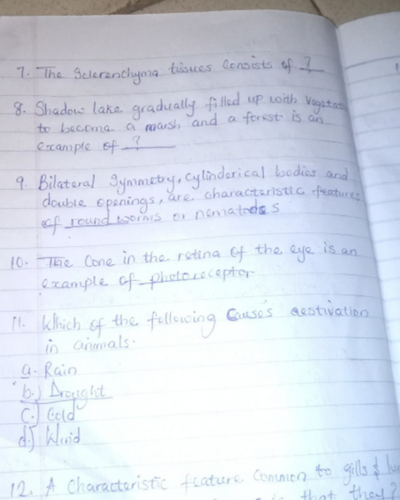 7. The Sclerenchyma tissues Consists of ?
8. Shadow lake gradually filled up with
to become a marsh and a forest is an
example of ?
9. Bilateral Symmetry, Cylinderical bodies and
double openings, are characteristic features
of round worms or nematodes
10. The Cone in the retina of the eye is an
example of photoreceptor.
11. Which of the following Causes aestivation
in animals.
a. Rain
b.) Draught
C.) Cold
d.)
12. A Characteristic feature Common to gills &
that they?